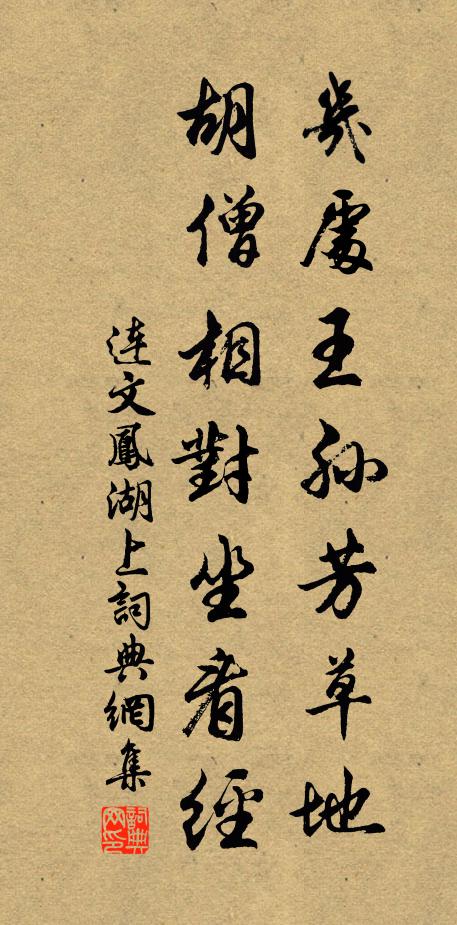 幾處王孫芳草地
胡僧相對坐看經
連文鳳湖上詞典網集
詞典网印